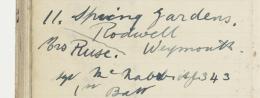 11. Spring Gardens.
Rodwell
Bro Ruse. Weymouth.
Sgt McNabb 343
1st Batt